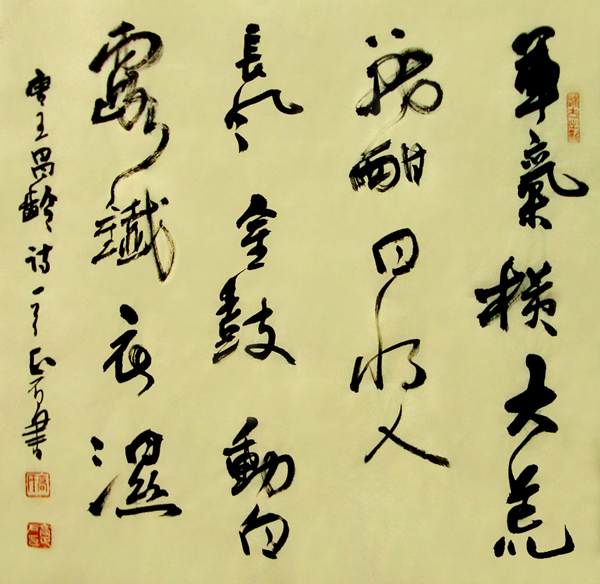 軍氣橫大荒
戰酣日將入
長風金鼓動白
露鐵衣濕
唐王昌齡詩一首 書